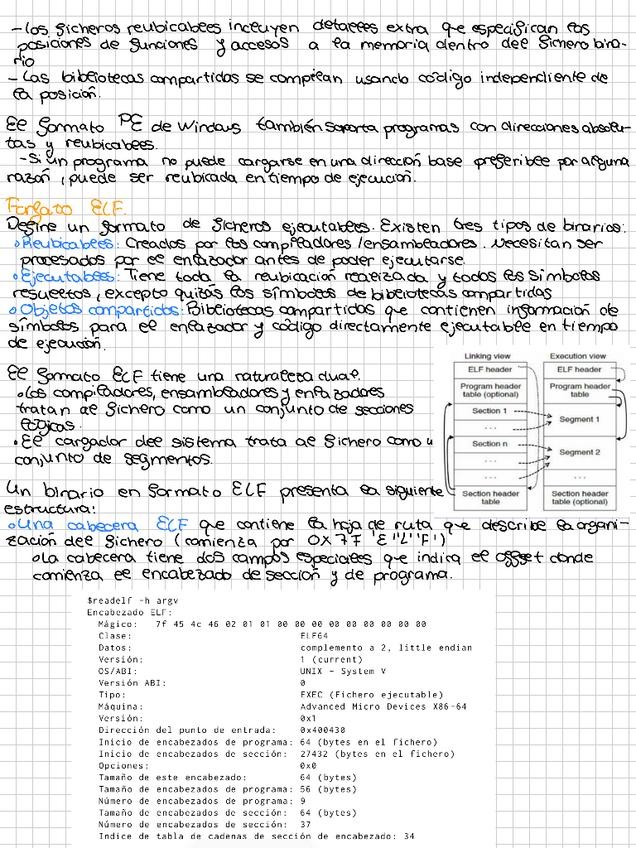 - Los ficheros reubicables incluyen detalles extra que especifican las
posiciones de funciones y accesos a la memoria dentro del fichero bina-
rio
- Las bibliotecas compartidas se compilan usando código independiente de
la posición.
El formato PE de Windows también soporta programas con direcciones absolu-
tas y reubicables.
- Si un programa no puede cargarse en una dirección base preferible por alguna
razón, puede ser reubicada en tiempo de ejecución.
Formato ELF
Define un formato de ficheros ejecutables. Existen tres tipos de binarios:
Reubicables: Creados por los compiladores/ensambladores. Necesitan ser
procesados por el enlazador antes de poder ejecutarse.
Ejecutables: Tiene toda la reubicación realizada y todos los símbolos
resueltos, excepto quizás los símbolos de bibliotecas compartidas
Objetos compartidos: Bibliotecas compartidas que contienen información de
símbolos para el enlazador y código directamente ejecutable en tiempo
de ejecución.
El formato ELF tiene una naturaleza dual.
Los compiladores, ensambladores y enlazadores
tratan al fichero como un conjunto de secciones
lógicas.
El cargador del sistema trata al fichero como u
conjunto de segmentos.
Linking view
ELF header
Program header
table (optional)
Section 1
...
Section n
...
...
Section header
table
Execution view
ELF header
Program header
table
Segment 1
Segment 2
...
Section header
table (optional)
Un binario en formato ELF presenta la siguiente
estructura:
Una cabecera ELF que contiene la hoja de ruta que describe la organi-
zación del fichero (comienza por 0X7F 'E''L''F')
La cabecera tiene dos campos especiales que indica el offset donde
comienza el encabezado de sección y de programa.
$readelf -h argv
Encabezado ELF:
Mágico: 7f 45 4c 46 02 01 01 00 00 00 00 00 00 00 00 00
Clase: ELF64
Datos: complemento a 2, little endian
Versión: 1 (current)
OS/ABI: UNIX - System V
Versión ABI: 0
Tipo: EXEC (Fichero ejecutable)
Máquina: Advanced Micro Devices X86-64
Versión: 0x1
Dirección del punto de entrada: 0x400430
Inicio de encabezados de programa: 64 (bytes en el fichero)
Inicio de encabezados de sección: 27432 (bytes en el fichero)
Opciones: 0x0
Tamaño de este encabezado: 64 (bytes)
Tamaño de encabezados de programa: 56 (bytes)
Número de encabezados de programa: 9
Tamaño de encabezados de sección: 64 (bytes)
Número de encabezados de sección: 37
Indice de tabla de cadenas de sección de encabezado: 34